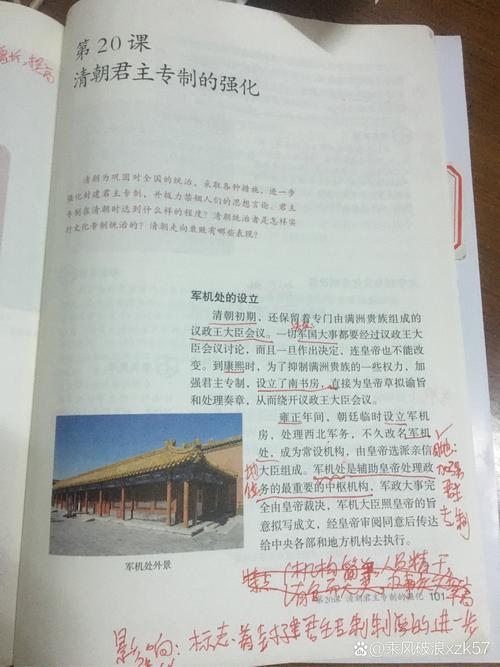 第20课
清朝君主专制的强化
清朝为巩固对全国的统治，采取各种措施，进一步
强化封建君主专制，并极力禁锢人们的思想言论。君主
专制在清朝时达到什么样的程度？清朝统治者是怎样实
行文化专制统治的？清朝走向衰败有哪些表现？
军机处的设立
清朝初期，还保留着专门由满洲贵族组成的
议政王大臣会议。一切军国大事都要经过议政王大
臣会议讨论，而且一旦作出决定，连皇帝也不能改
变。到康熙时，为了抑制满洲贵族的一些权力，加
强君主专制，设立了南书房，直接为皇帝草拟谕旨
和处理奏章，从而绕开议政王大臣会议。
雍正年间，朝廷临时设立军机
房，处理西北军务，不久改名军机
处，成为常设机构，由皇帝选派亲信
大臣组成。军机处是辅助皇帝处理政
务的最重要的中枢机构，军政大事完
全由皇帝裁决，军机大臣照皇帝的旨
意拟写成文，经皇帝审阅同意后传达
给中央各部和地方机构去执行。
地位
目的：
加强
君主
专制
军机处外景
特点 机构简单 人员精干
第20课 清朝君主专制的强化 101
影响：标志着封建君主专制制度的进一步
@乘风破浪xzk57